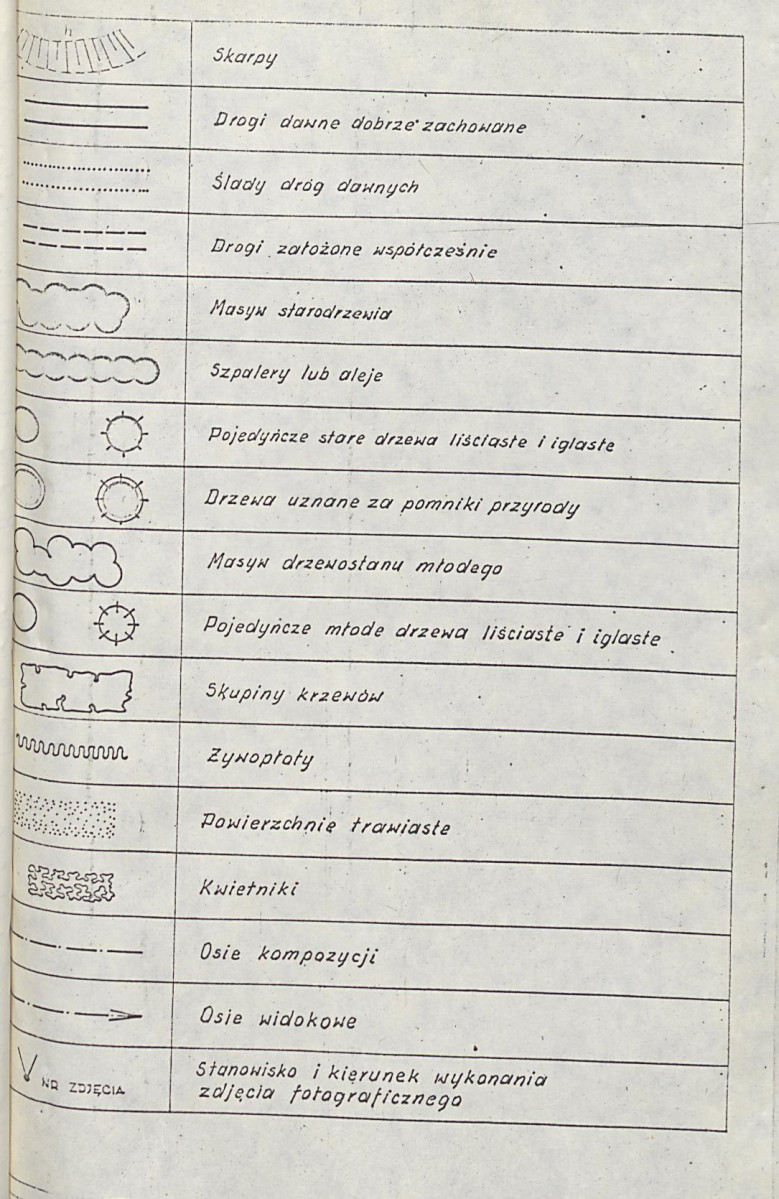 Skarpy
Drogi dawne dobrze zachowane
Ślady dróg dawnych
Drogi założone współcześnie
Masyw starodrzewia
Szpalery lub aleje
Pojedyńcze stare drzewa liściaste i iglaste
Drzewa uznane za pomniki przyrody
Masyw drzewostanu młodego
Pojedyńcze młode drzewa liściaste i iglaste
Skupiny krzewów
Żywopłoty
Powierzchnie trawiaste
Kwietniki
Osie kompozycji
Osie widokowe
NR ZDJĘCIA
Stanowisko i kierunek wykonania
zdjęcia fotograficznego